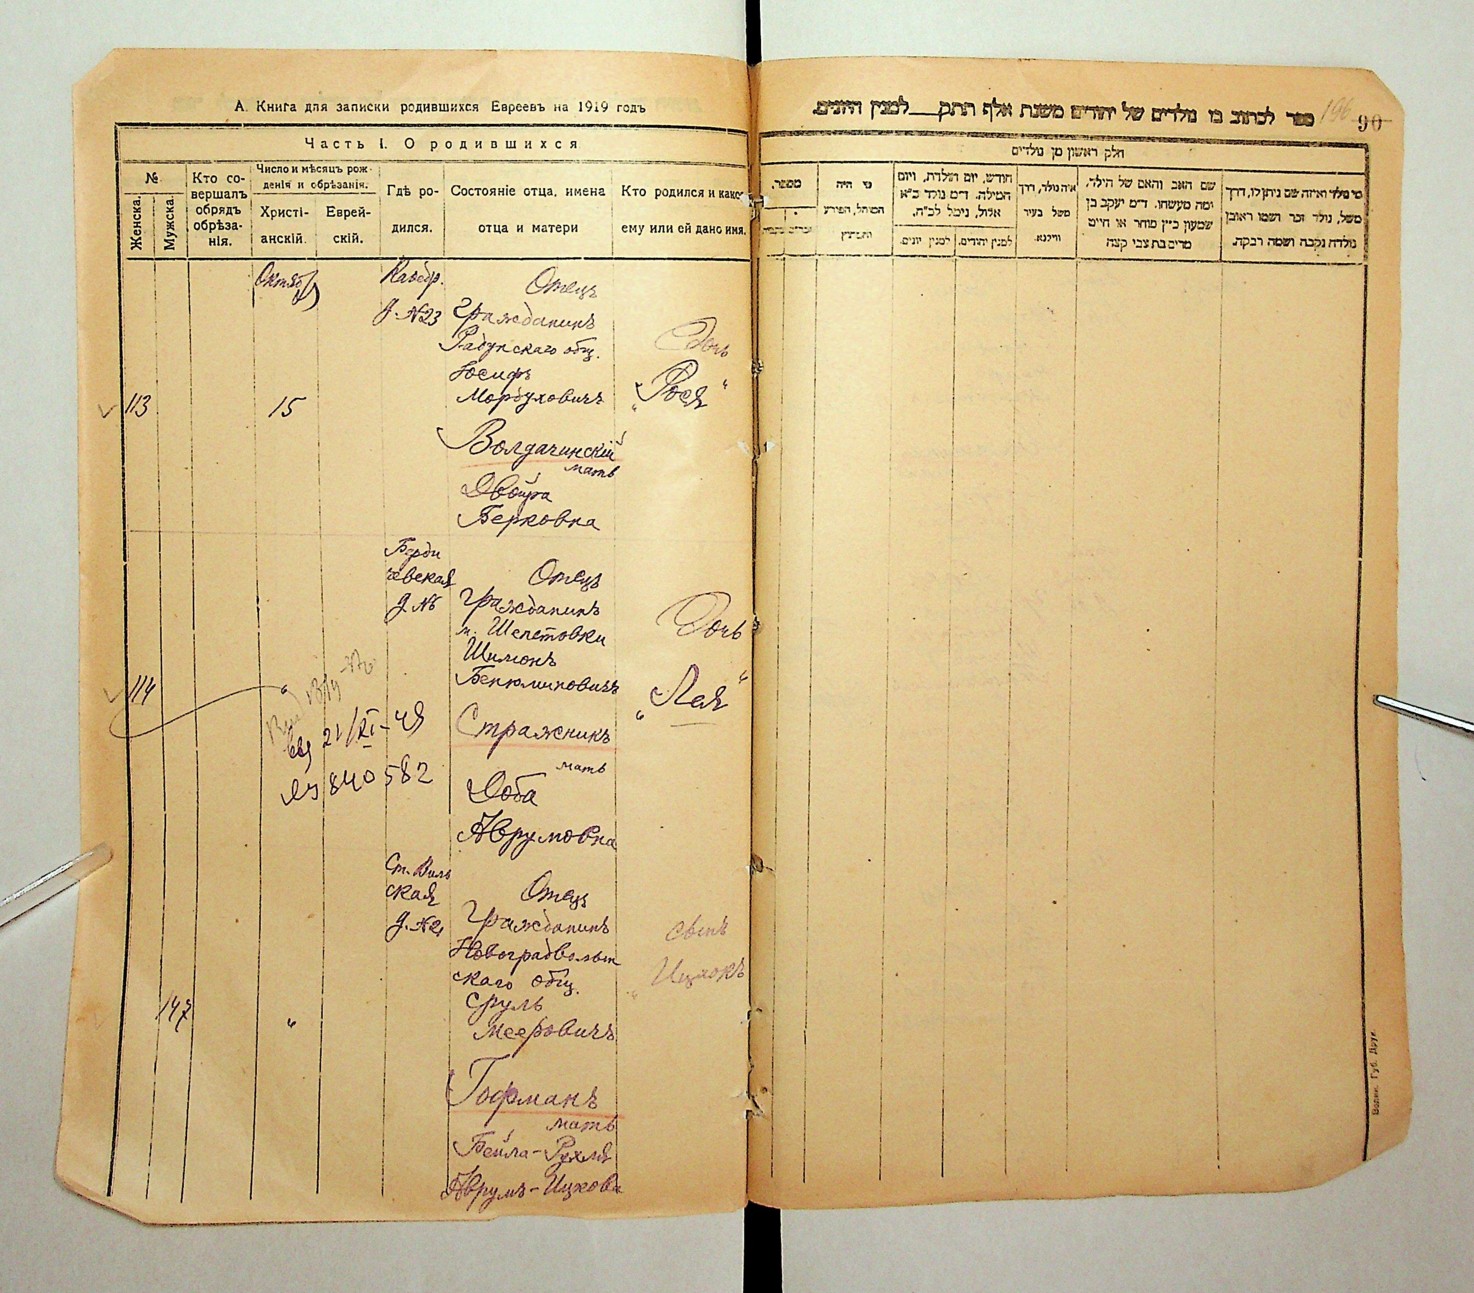 А. Книга для записки родившихся Евреевъ на 1919 годъ
Часть I. О родившихся
№
Женска.
Мужска.
Кто со-
вершалъ
обрядъ
обрѣза-
нія.
Число и мѣсяцъ рож-
денія и обрѣзанія.
Христі-
анскій.
Еврей-
скій.
Гдѣ ро-
дился.
Состояніе отца, имена
отца и матери
Кто родился и како
ему или ей дано имя.
113
Октяб
15
Каѳедр.
д. №23
Отецъ
Гражданинъ
Радунскаго общ.
Юсифъ
Мордуховичъ
Волдачинскій
мать
Двойра
Берковна
Дочь
„Рося"
114
Берди
чевская
д. №
Отецъ
Гражданинъ
м. Шепетовки
Шимонъ
Бенюминовичъ
Стражникъ
мать
Доба
Аврумовна
Дочь
„Лея"
21/XI-49
840582
147
"
Ст. Виль
ская
д. №
Отецъ
Гражданинъ
Новоградволын
скаго общ.
Сруль
Мееровичъ
Гофманъ
мать
Бейла-Рухля
Аврумъ-Ицкова
сынъ
„Ицхокъ
ספר לכתוב בו נולדים של יהודים משנת אלף תתק___למנין היונים.
196
90
חלק ראשון מן נולדים
מספר,
מי היה
המוהל, הפירע
והמוצץ
חודש, יום הולדת, ויום
המילה. ד״מ נולד כ״א
אלול, נימל לכ״ח,
למנין יונים.
למנין יהודים.
איה נולד, דרך
משל בעיר
ווילנא.
שם האב והאם של הילד,
ומה מעשהו. ד״מ יעקב בן
שמעון כ״ץ סוחר או חייט
מרים בת צבי קצה
מי נולד ואיזה שם ניתן לו, דרך
משל, נולד זכר ושמו ראובן
נולדה נקבה ושמה רבקה.
Волын. Губ. Друк.